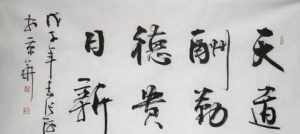 天道
酬勤
德贵
日新
戊子年
京華